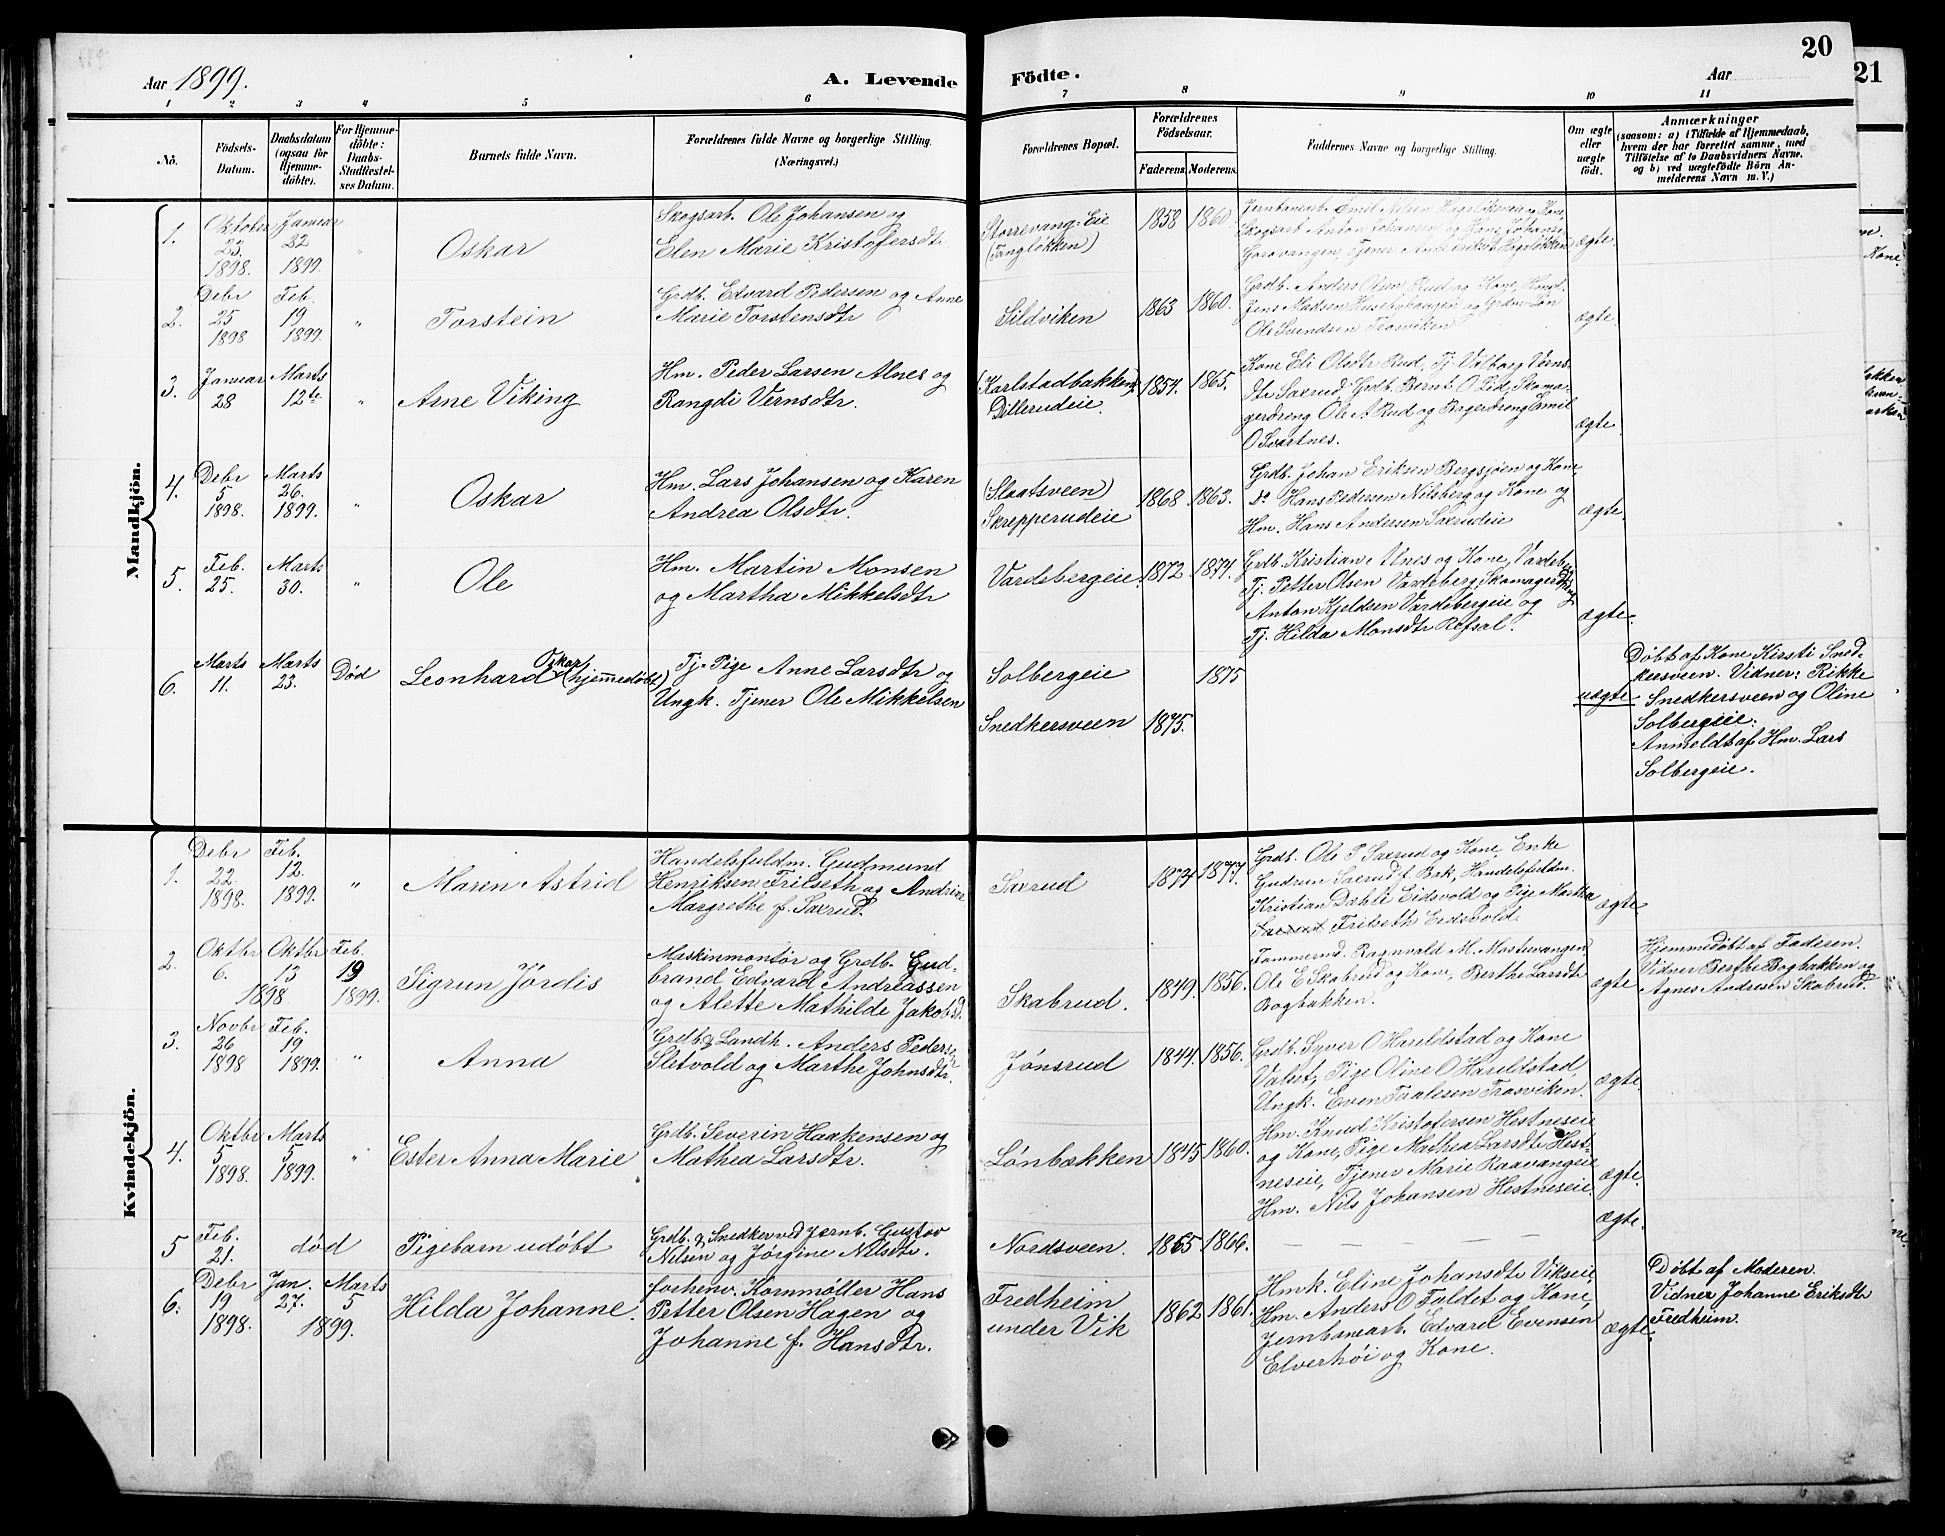 20
21
Aar 1899.
A. Levende Födte.
Aar
1 2 3 4 5 6 7 8 9 10 11
No.
Födsels-Datum.
Daabsdatum (ogsaa for Hjemme-döbte).
For Hjemme-döbte: Daabs-Stadfæstel-ses Datum.
Barnets fulde Navn.
Forældrenes fulde Navne og borgerlige Stilling.
(Næringsvei.)
Forældrenes Bopæl.
Forældrenes Födselsaar.
Faderens. Moderens.
Faddernes Navne og borgerlige Stilling.
Om ægte eller uægte födt.
Anmærkninger
(saasom: a) i Tilfælde af Hjemmedaab, hvem der har forrettet samme, med Tilföielse af to Daabsvidners Navne, og b) ved uægtefödte Börn An-melderens Navn m. V.)
Mandkjön.
1. Oktober 23. 1898. Januar 22 1899. " Oskar
Skogsarb. Ole Johansen og
Elen Marie Kristofersdtr
Storrevang. Eie
(Tangløkken)
1858 1860.
Jernbanearb. Emil Nilsen og Kone,
Skogsarb. Anton Johansen og Kone, Johans
ægte
2. Debr 25 1898 Feb. 19 1899. " Torstein
Grdb. Edvard Pedersen og Anne
Marie Torstensdtr
Sildviken
1863 1860.
Grdb. Anders Olsen Rud og Kone,
Jens Madsen
Ole Svendsen Trosviken
ægte.
3. Januar 28 Marts 12te " Arne Viking
Hm. Peder Larsen Alnes og
Rangdi Vernsdtr.
(Karlstadbakken)
Dillerudeie.
1854. 1865.
Kone Eli Olsdtr Rud, Tj. Valborg Verns-
dtr Saxrud, Grdb. Bernt O Lid, Skoma-
gerdreng Ole A Rud og Bagerdreng Emil
O Svartnes.
ægte.
4. Debr 5 1898. Marts 26. 1899. " Oskar
Hm. Lars Johansen og Karen
Andrea Olsdtr.
(Slaatsveen)
Skrepperudeie
1868 1863.
Grdb. Johan Eriksen Bergsjøen og Kone,
Do Hans Pedersen Nilsberg og Kone og
Hm. Hans Andersen Saxrudeie
ægte.
5. Feb. 25. Marts 30. " Ole
Hm. Martin Monsen
og Martha Mikkelsdtr
Vardebergeie.
1872. 1874.
Grdb. Kristian Alnes og Kone, Vardeberg
Tj. Petter Olsen Vardeberg, Skomagerdreng
Anton Kjeldsen Vardebergeie og
Tj. Hilda Monsdtr Refsal.
ægte.
6. Marts 11. Marts 23. Død Leonhard Oskar (hjemedøbt)
Tj. Pige Anne Larsdtr og
Ungk. Tjener Ole Mikkelsen
Solbergeie 1875
Snedkersveen 1875.
uægte
Døbt af Kone Kirsti Sned-
kersveen. Vidner: Rikke
Snedkersveen og Oline
Solbergeie.
Anmeldt af Hm. Lars
Solbergeie.
Kvindekjön.
1. Debr 22. 1898. Feb. 12. 1899. " Maren Astrid
Handelsfuldm. Gudmund
Henriksen Frilseth og Andrine
Margrethe f. Saxrud.
Saxrud
1874 1877.
Grdb. Ole P Saxrud og Kone, Enke
Gudrun Saxrud f. Bak, Handelsfuldm.
Kristian Dæhli Eidsvold og Pige Martha
Saxrud Frilseth Eidsvold.
ægte
2. Oktbr 6. Oktbr 13 1898 Feb. 19 1899. Sigrun Jørdis
Maskinmontør og Grdb. Gud-
brand Edvard Andreassen
og Alette Mathilde Jakobsd.
Skabrud.
1849. 1856.
Tømmermd. Ragnvald M. Mostuevangen,
Ole E Skabrud og Kone, Berthe Larsdtr
Bogbakken.
ægte
Hjemmedøbt af Faderen.
Vidner Berthe Bogbakken og
Agnes Andresen Skabrud.
3. Novbr 26 1898 Feb. 19 1899. " Anna
Grdb. & Landh. Anders Pedersen
Sletvold og Marthe Johnsdtr.
Jønsrud
1844. 1856.
Grdb. Syver O Hareldstad og Kone
Valset, Pige Oline O Hareldstad,
Ungk. Even Taalesen Trosviken.
ægte.
4. Oktbr 5 1898. Marts 5 1899. " Ester Anna Marie
Grdb. Severin Haakensen og
Mathea Larsdtr.
Lønbækken
1845 1860.
Hm. Knud Kristofersen Hestneseie
og Kone, Pige Mathea Larsdtr Hest-
neseie, Tjener Marie Raavangeie
Hm. Nils Johansen Hestneseie.
ægte.
5 Feb. 21. død Pigebarn udøbt
Grdb. & Snedker ved Jernb. Gustav
Nilsen og Jørgine Nilsdtr.
Nordsveen.
1865 1866.
ægte.
6. Debr 19 1898. Jan. 27. Marts 5 1899. Hilda Johanne.
forhenv. Kornmøller Hans
Petter Olsen Hagen og
Johanne f. Hansdtr.
Fredheim
under Vik
1862 1861.
Hmk. Eline Johansdtr Vikseie,
Hm. Anders O Faldet og Kone,
Jernbanearb. Edvard Evensen
Elverhöi og Kone.
ægte.
Døbt af Moderen.
Vidner Johanne Eriksdtr
Fredheim.